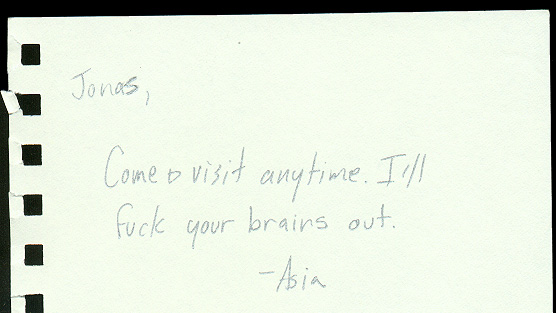 Jonas,
Come visit anytime. I'll
fuck your brains out.
-Asia